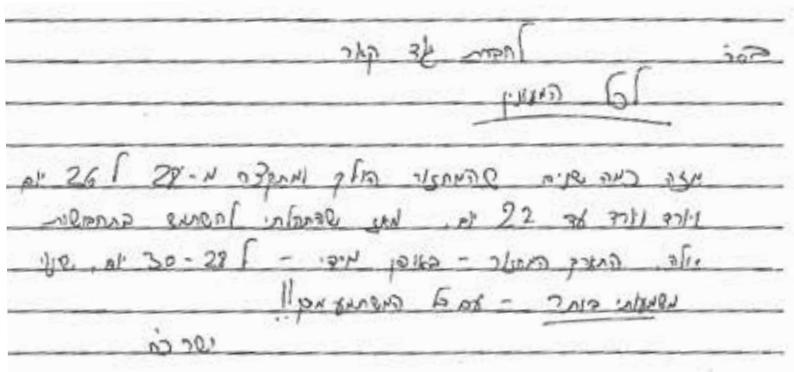 בס"ד
לחברת גוד קאר
לכל המעונין
מזה כמה שנים שהמחזור הולך ומתקצר מ-28 ל 26 יום
ויורד ויורד עד 22 יום. מאז שהתחלתי להשתמש בתחבושות
אילה, התארך המחזור - באופן מידי - ל 28-30 יום. שינוי
משמעותי ביותר - עם כל המשתמע מכך!!
ישר כח